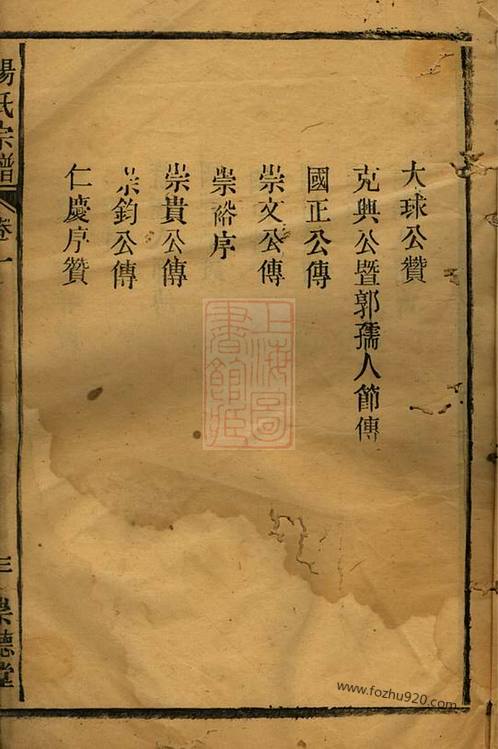 大球公贊
克與公暨郭孺人節傳
國正公傳
崇文公傳
崇裕序
崇貴公傳
崇鈞公傳
仁慶序贊
楊氏宗譜
卷一
三
崇德堂
上海圖書館
www.fozhu920.com